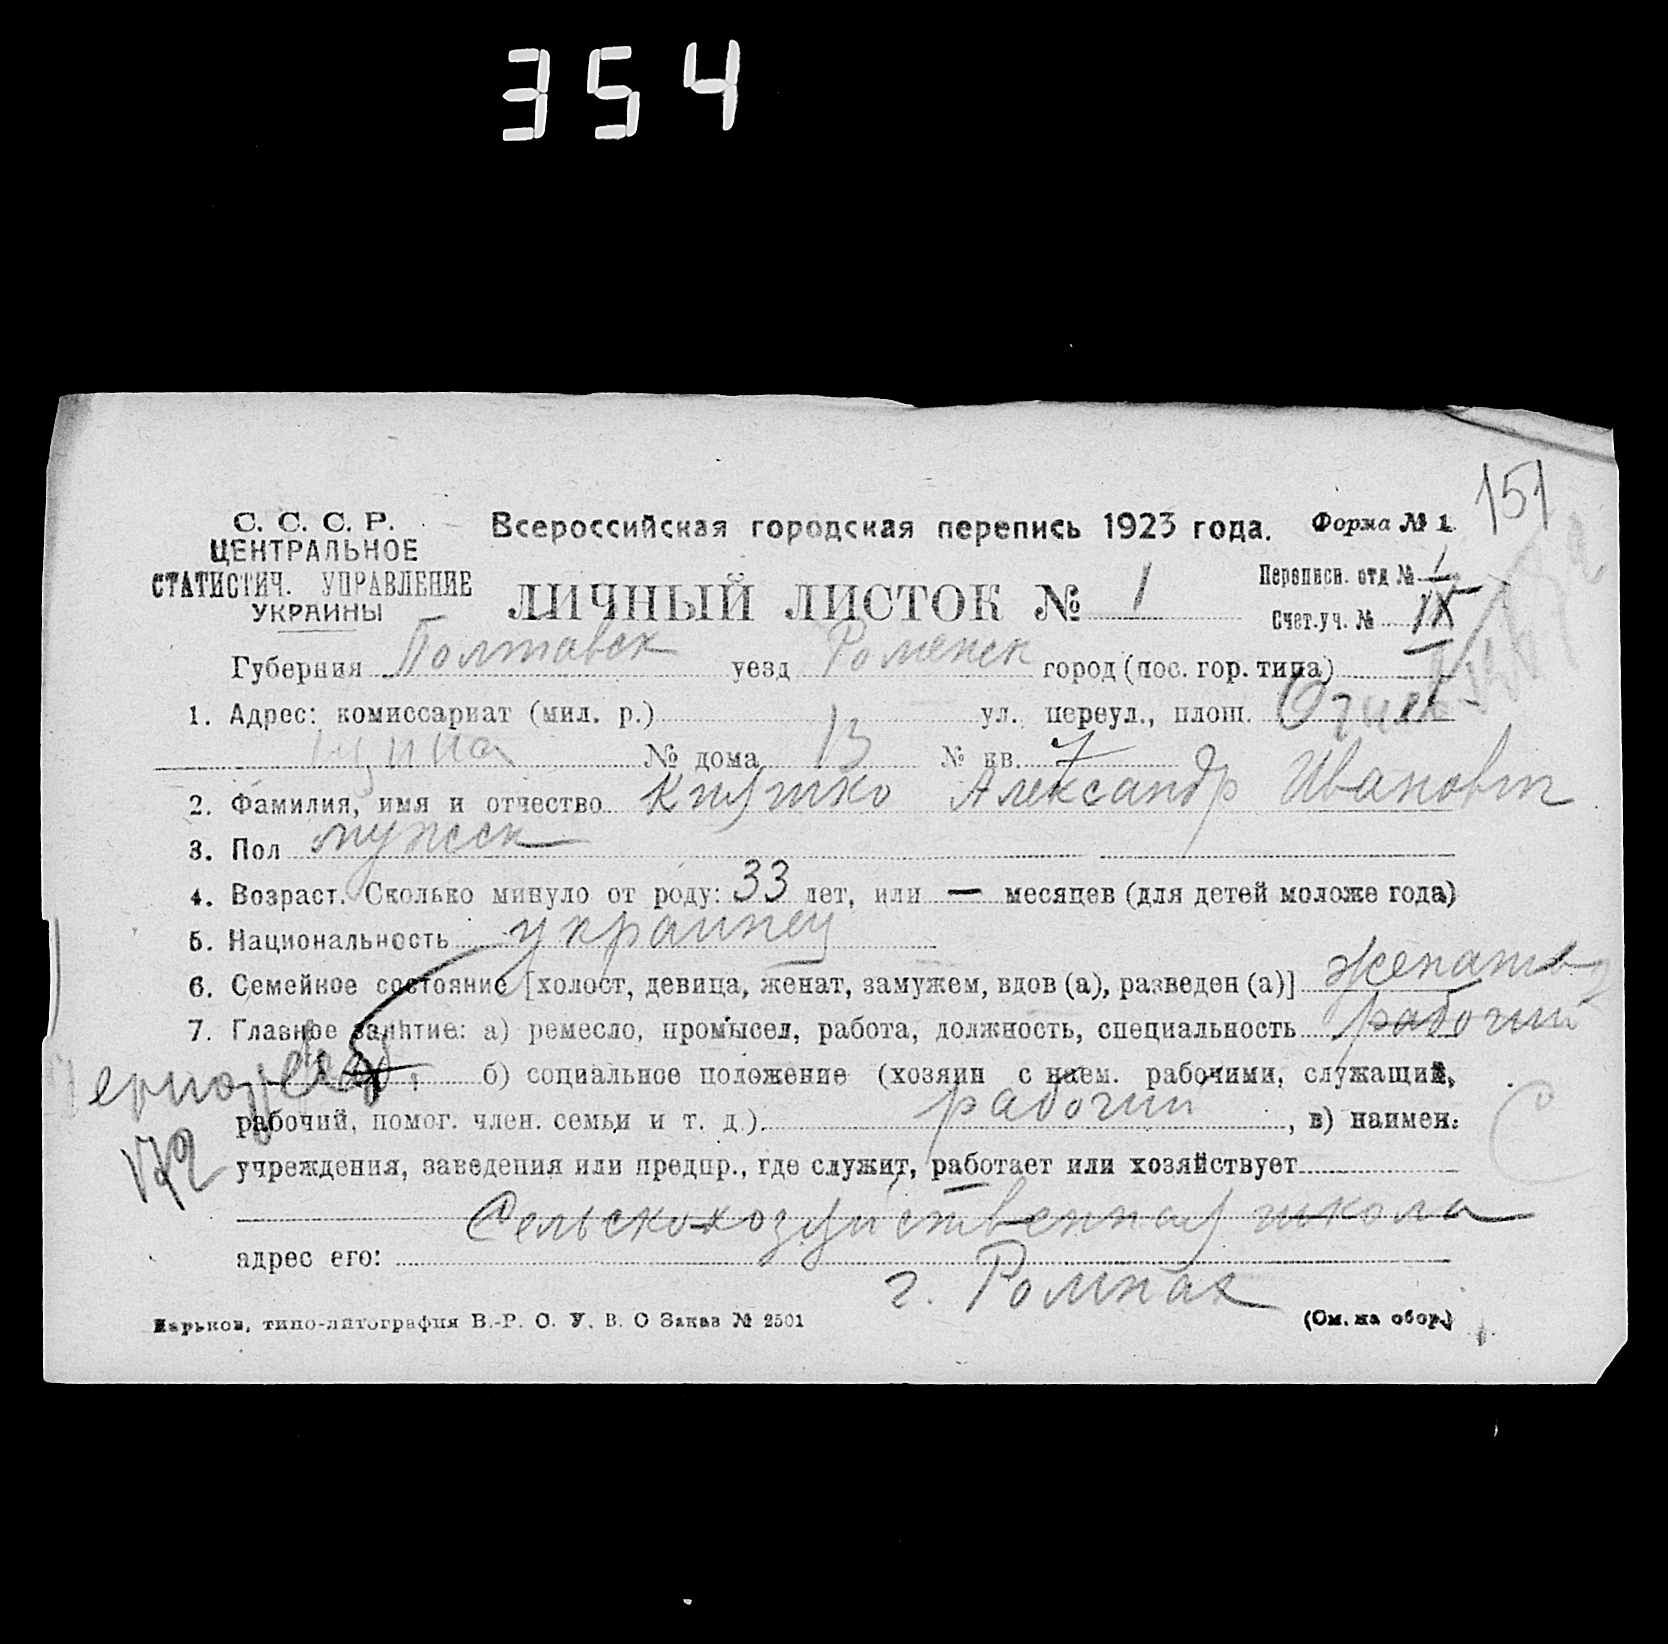 354
151
С. С. С. Р.
ЦЕНТРАЛЬНОЕ
СТАТИСТИЧ. УПРАВЛЕНИЕ
УКРАИНЫ
Всероссийская городская перепись 1923 года.
Форма № 1
ЛИЧНЫЙ ЛИСТОК № 1
Переписн. отд № 1
Счет.уч. № IX
Губерния Полтавск уезд Роменск город (пос. гор. типа)
1. Адрес: комиссариат (мил. р.) ул. переул., площ.
№ дома 13 № кв. 7
2. Фамилия, имя и отчество Александр Иванович
3. Пол мужск
4. Возраст. Сколько минуло от роду: 33 лет, или — месяцев (для детей моложе года)
5. Национальность украинец
6. Семейное состояние [холост, девица, женат, замужем, вдов (а), разведен (а)] женат
7. Главное занятие: а) ремесло, промысел, работа, должность, специальность рабочий
б) социальное положение (хозяин с наем. рабочими, служащий,
рабочий, помог. член. семьи и т. д.) рабочий, в) наимен.
172
учреждения, заведения или предпр., где служит, работает или хозяйствует
Сельскохозяйственная школа
адрес его: г. Ромнах
Харьков, типо-литография В.-Р. О. У. В. О Заказ № 2501
(См. на обор.)